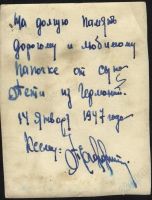 На долгую память
дорогому и любимому
Папочке от сына
Пети из Германии.
14 Января 1947 года